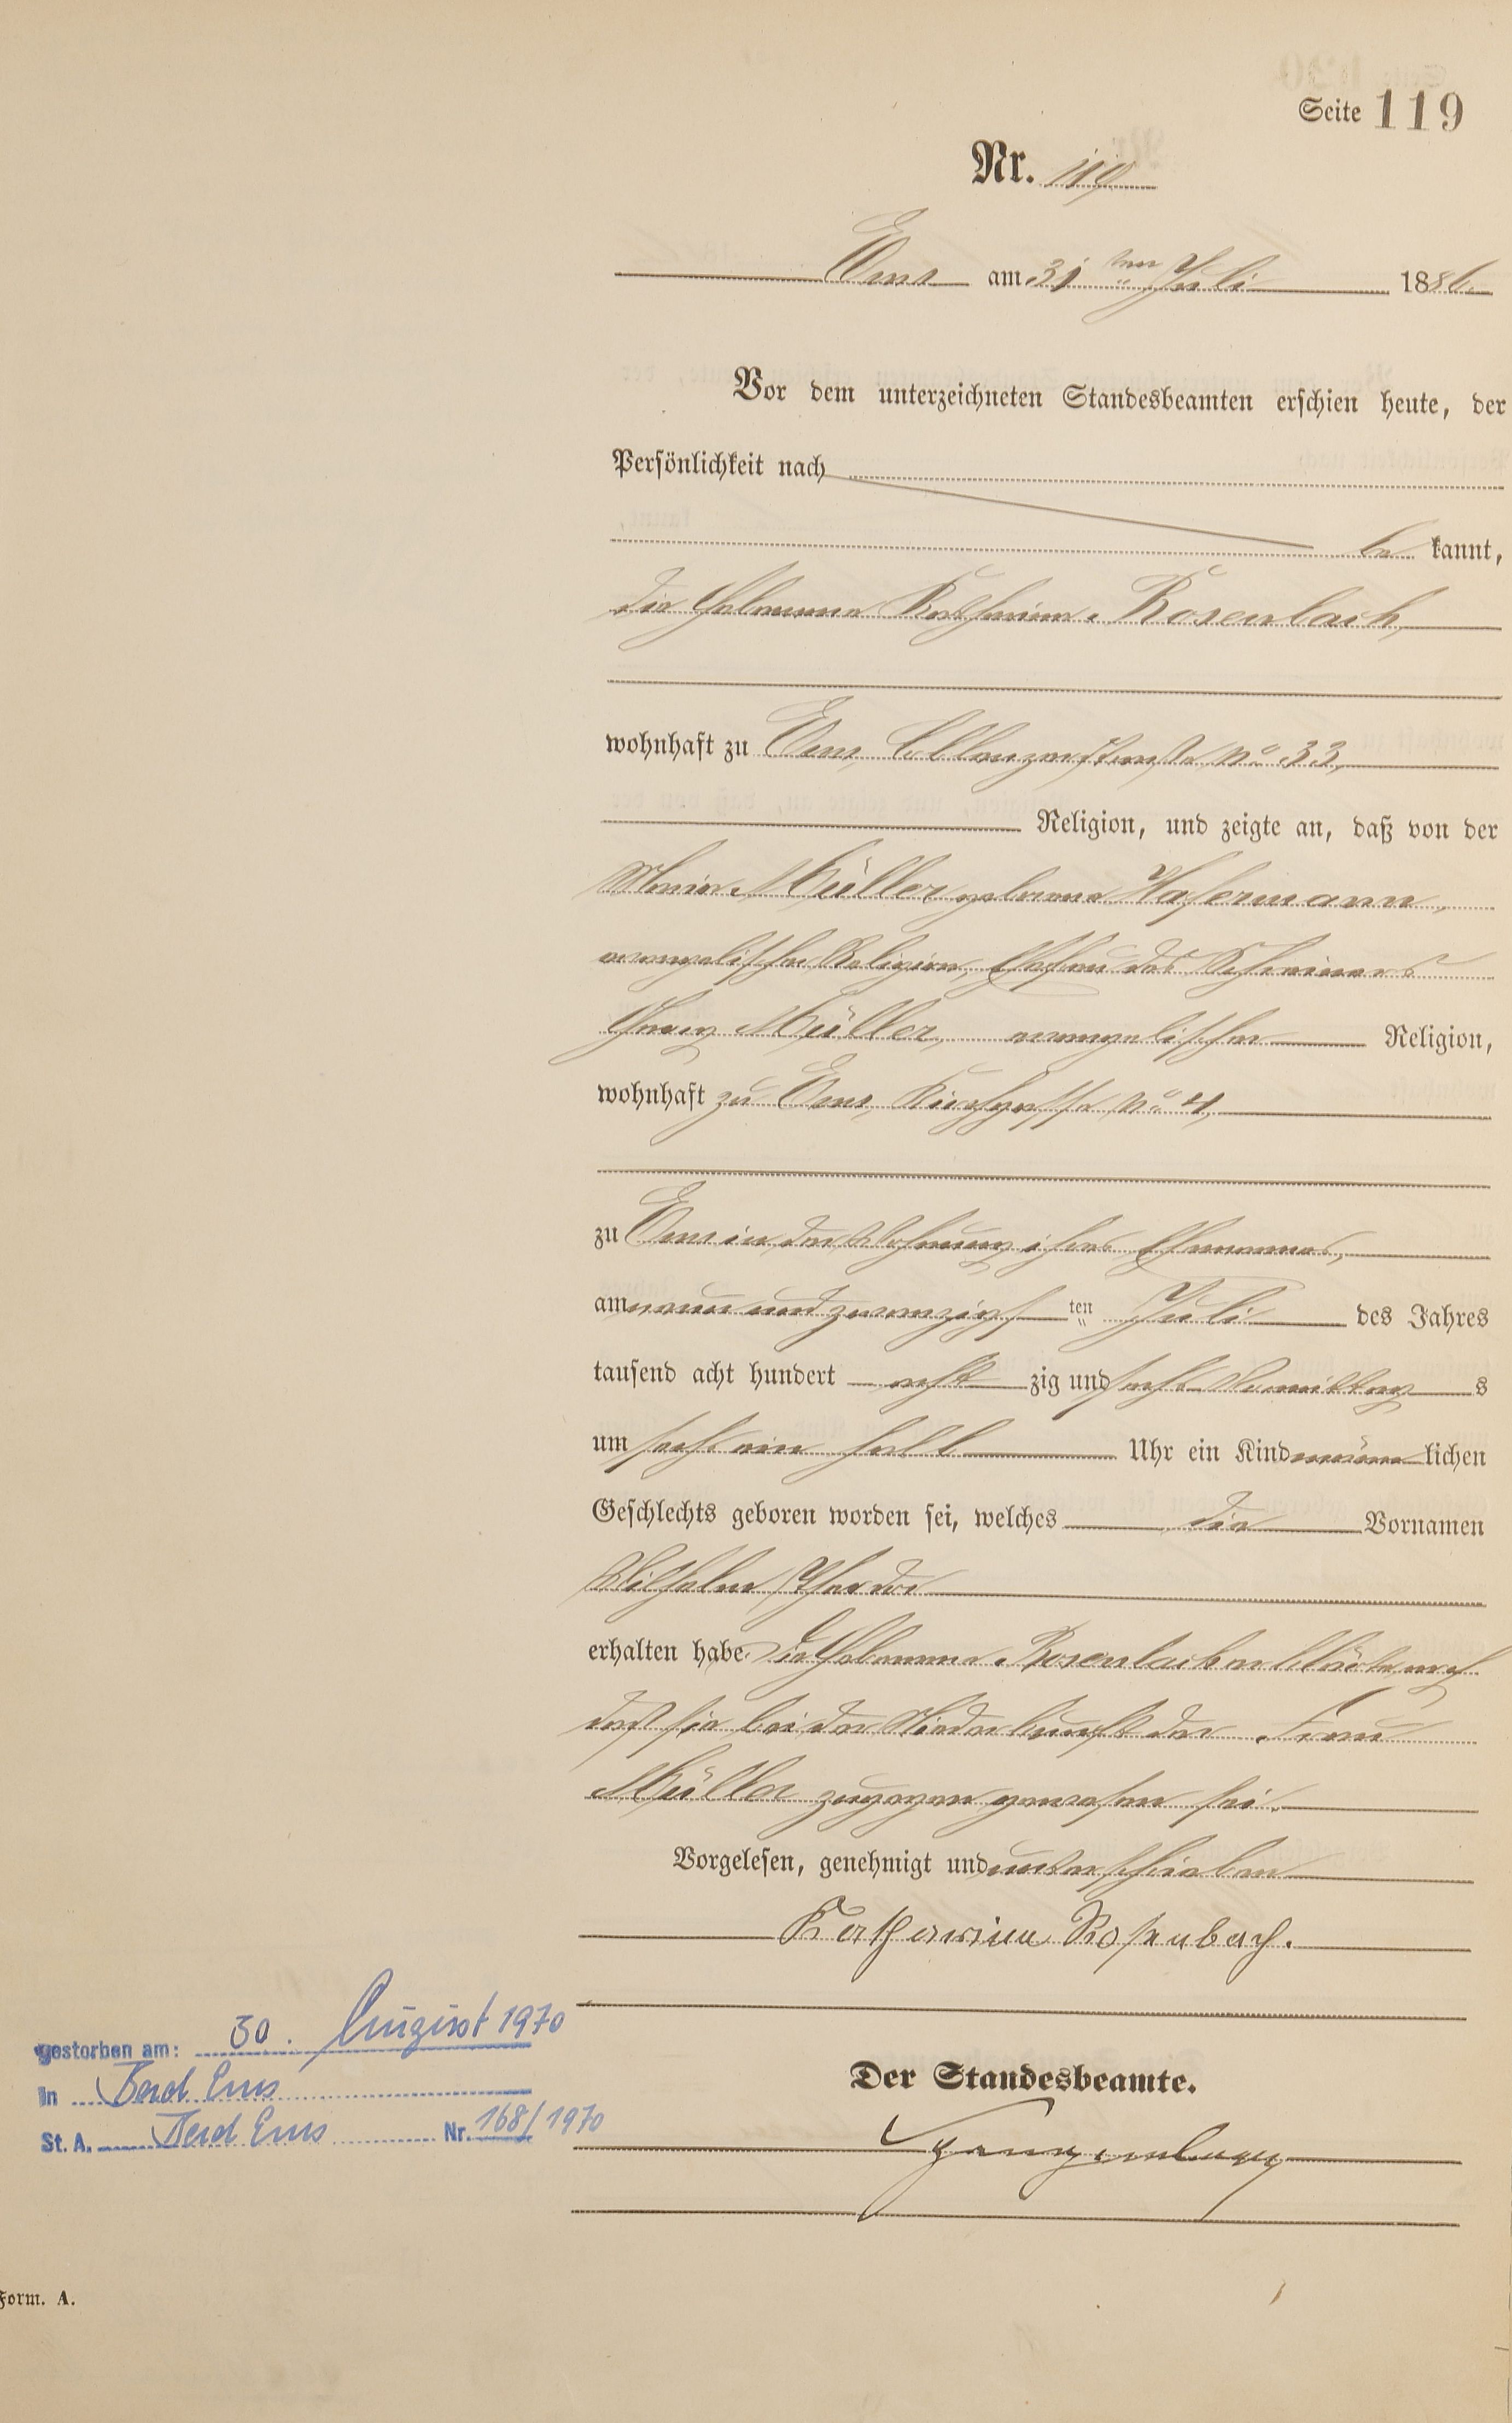 Seite 119
Nr. 119
Ems am 31 ten Juli 1886.
Vor dem unterzeichneten Standesbeamten erschien heute, der
Persönlichkeit nach
be kannt,
die Hebamme Katharina Rosenbach,
wohnhaft zu Ems, Coblenzerstraße No 33,
Religion, und zeigte an, daß von der
Maria Müller geborene Hasermann,
evangelischer Religion, Ehefrau des Schreiners
Georg Müller, evangelischer Religion,
wohnhaft zu Ems, Kirchgasse No 4,
zu Ems in der Wohnung ihres Ehemannes,
am neun und zwanzigsten Juli des Jahres
tausend acht hundert acht zig und sechs Vormittag s
um sechs ein halb Uhr ein Kind männ lichen
Geschlechts geboren worden sei, welches die Vornamen
Wilhelm Theodor
erhalten habe. Die Hebamme Rosenbach erklärte noch
daß sie bei der Niederkunft der Frau
Müller zugegen gewesen sei.
Vorgelesen, genehmigt und unterschrieben
Katharina Rosenbach.
gestorben am: 30. August 1970
in Bad Ems
St. A. Bad Ems Nr. 168/1970
Der Standesbeamte.
Form. A.